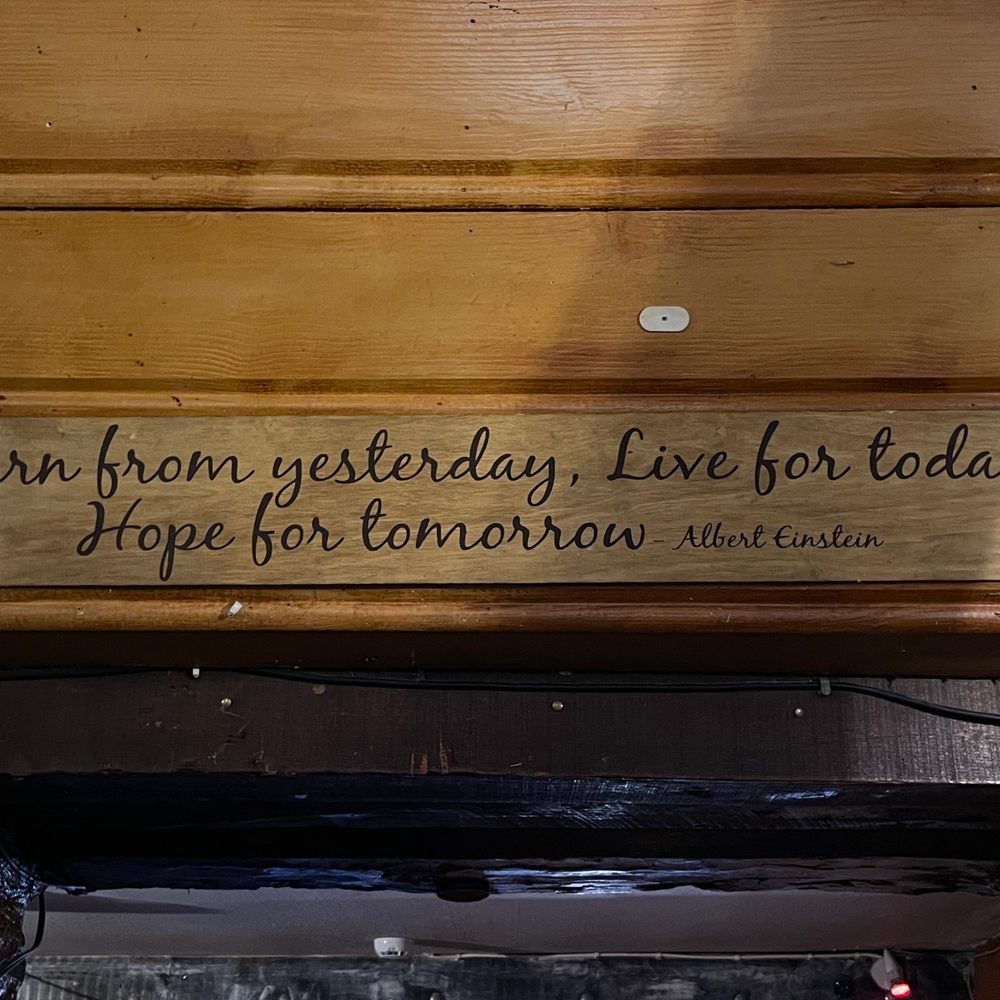 rn from yesterday, Live for toda
Hope for tomorrow - Albert Einstein